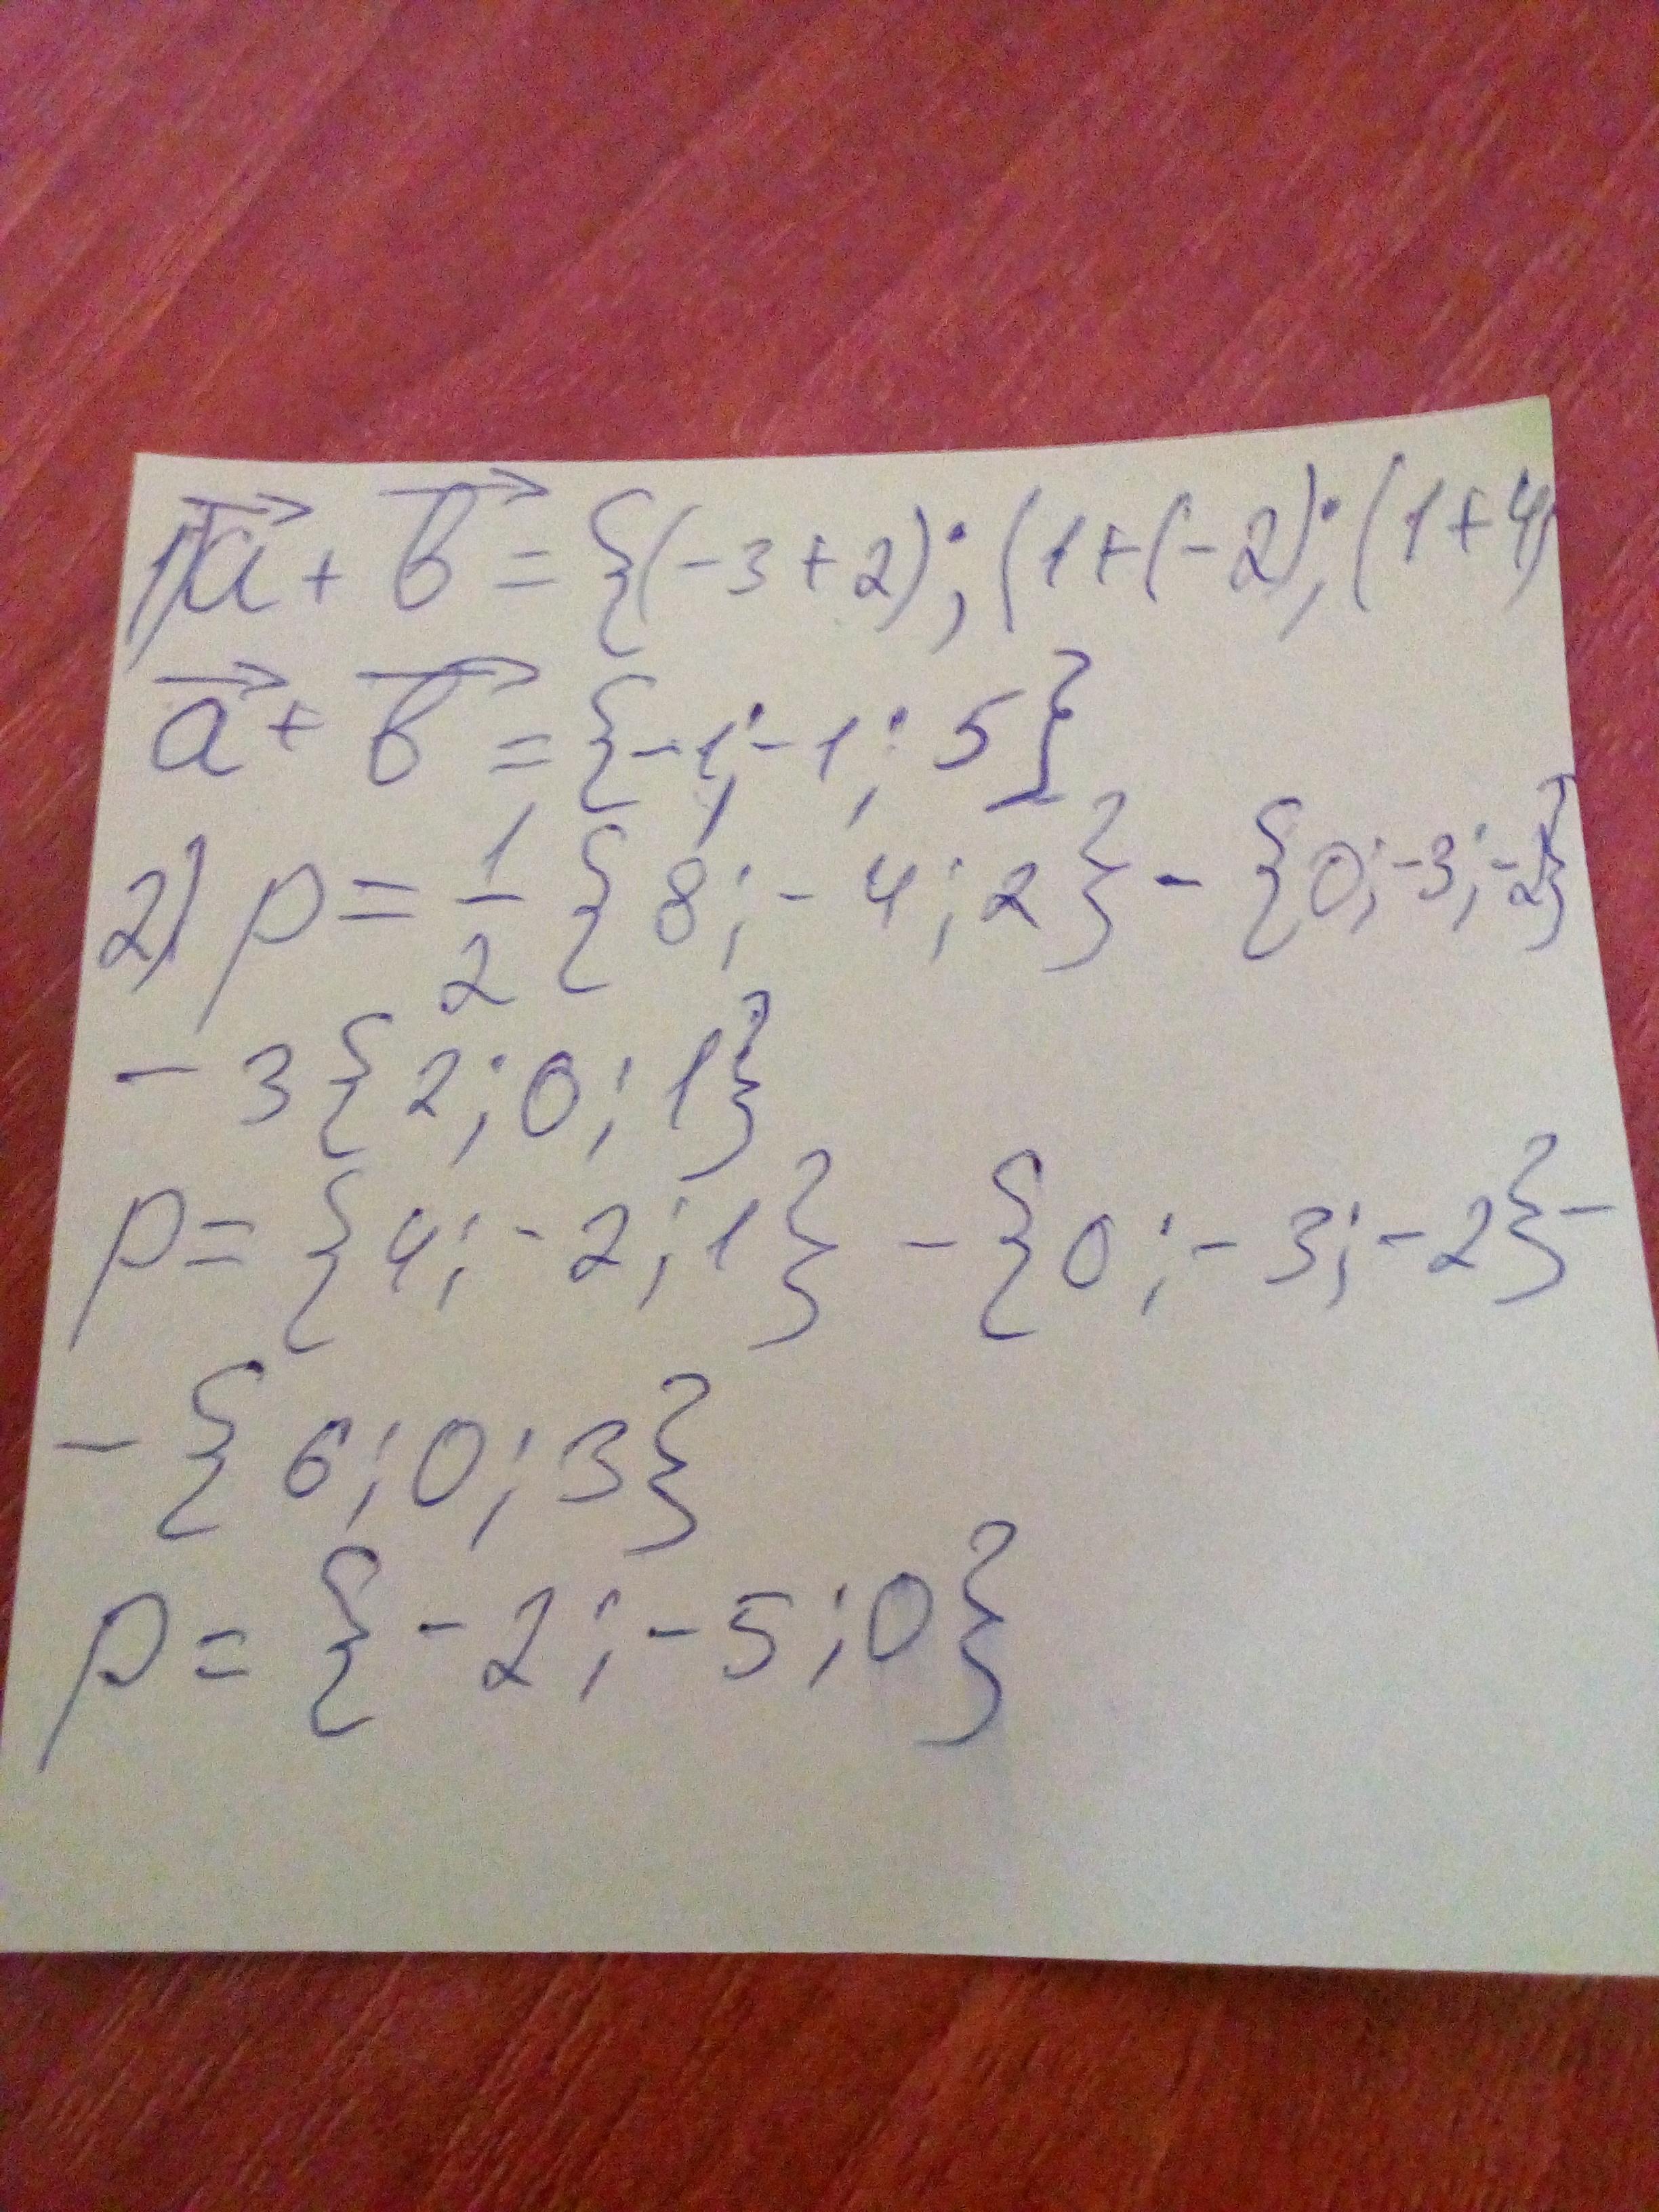 1) a⃗ + b⃗ = {(-3+2); (1+(-2); (1+4)
a⃗ + b⃗ = {-1; -1; 5}
2) p = 1/2 {8; -4; 2} - {0; -3; -2}
- 3{2; 0; 1}
p = {4; -2; 1} - {0; -3; -2} -
- {6; 0; 3}
p = {-2; -5; 0}